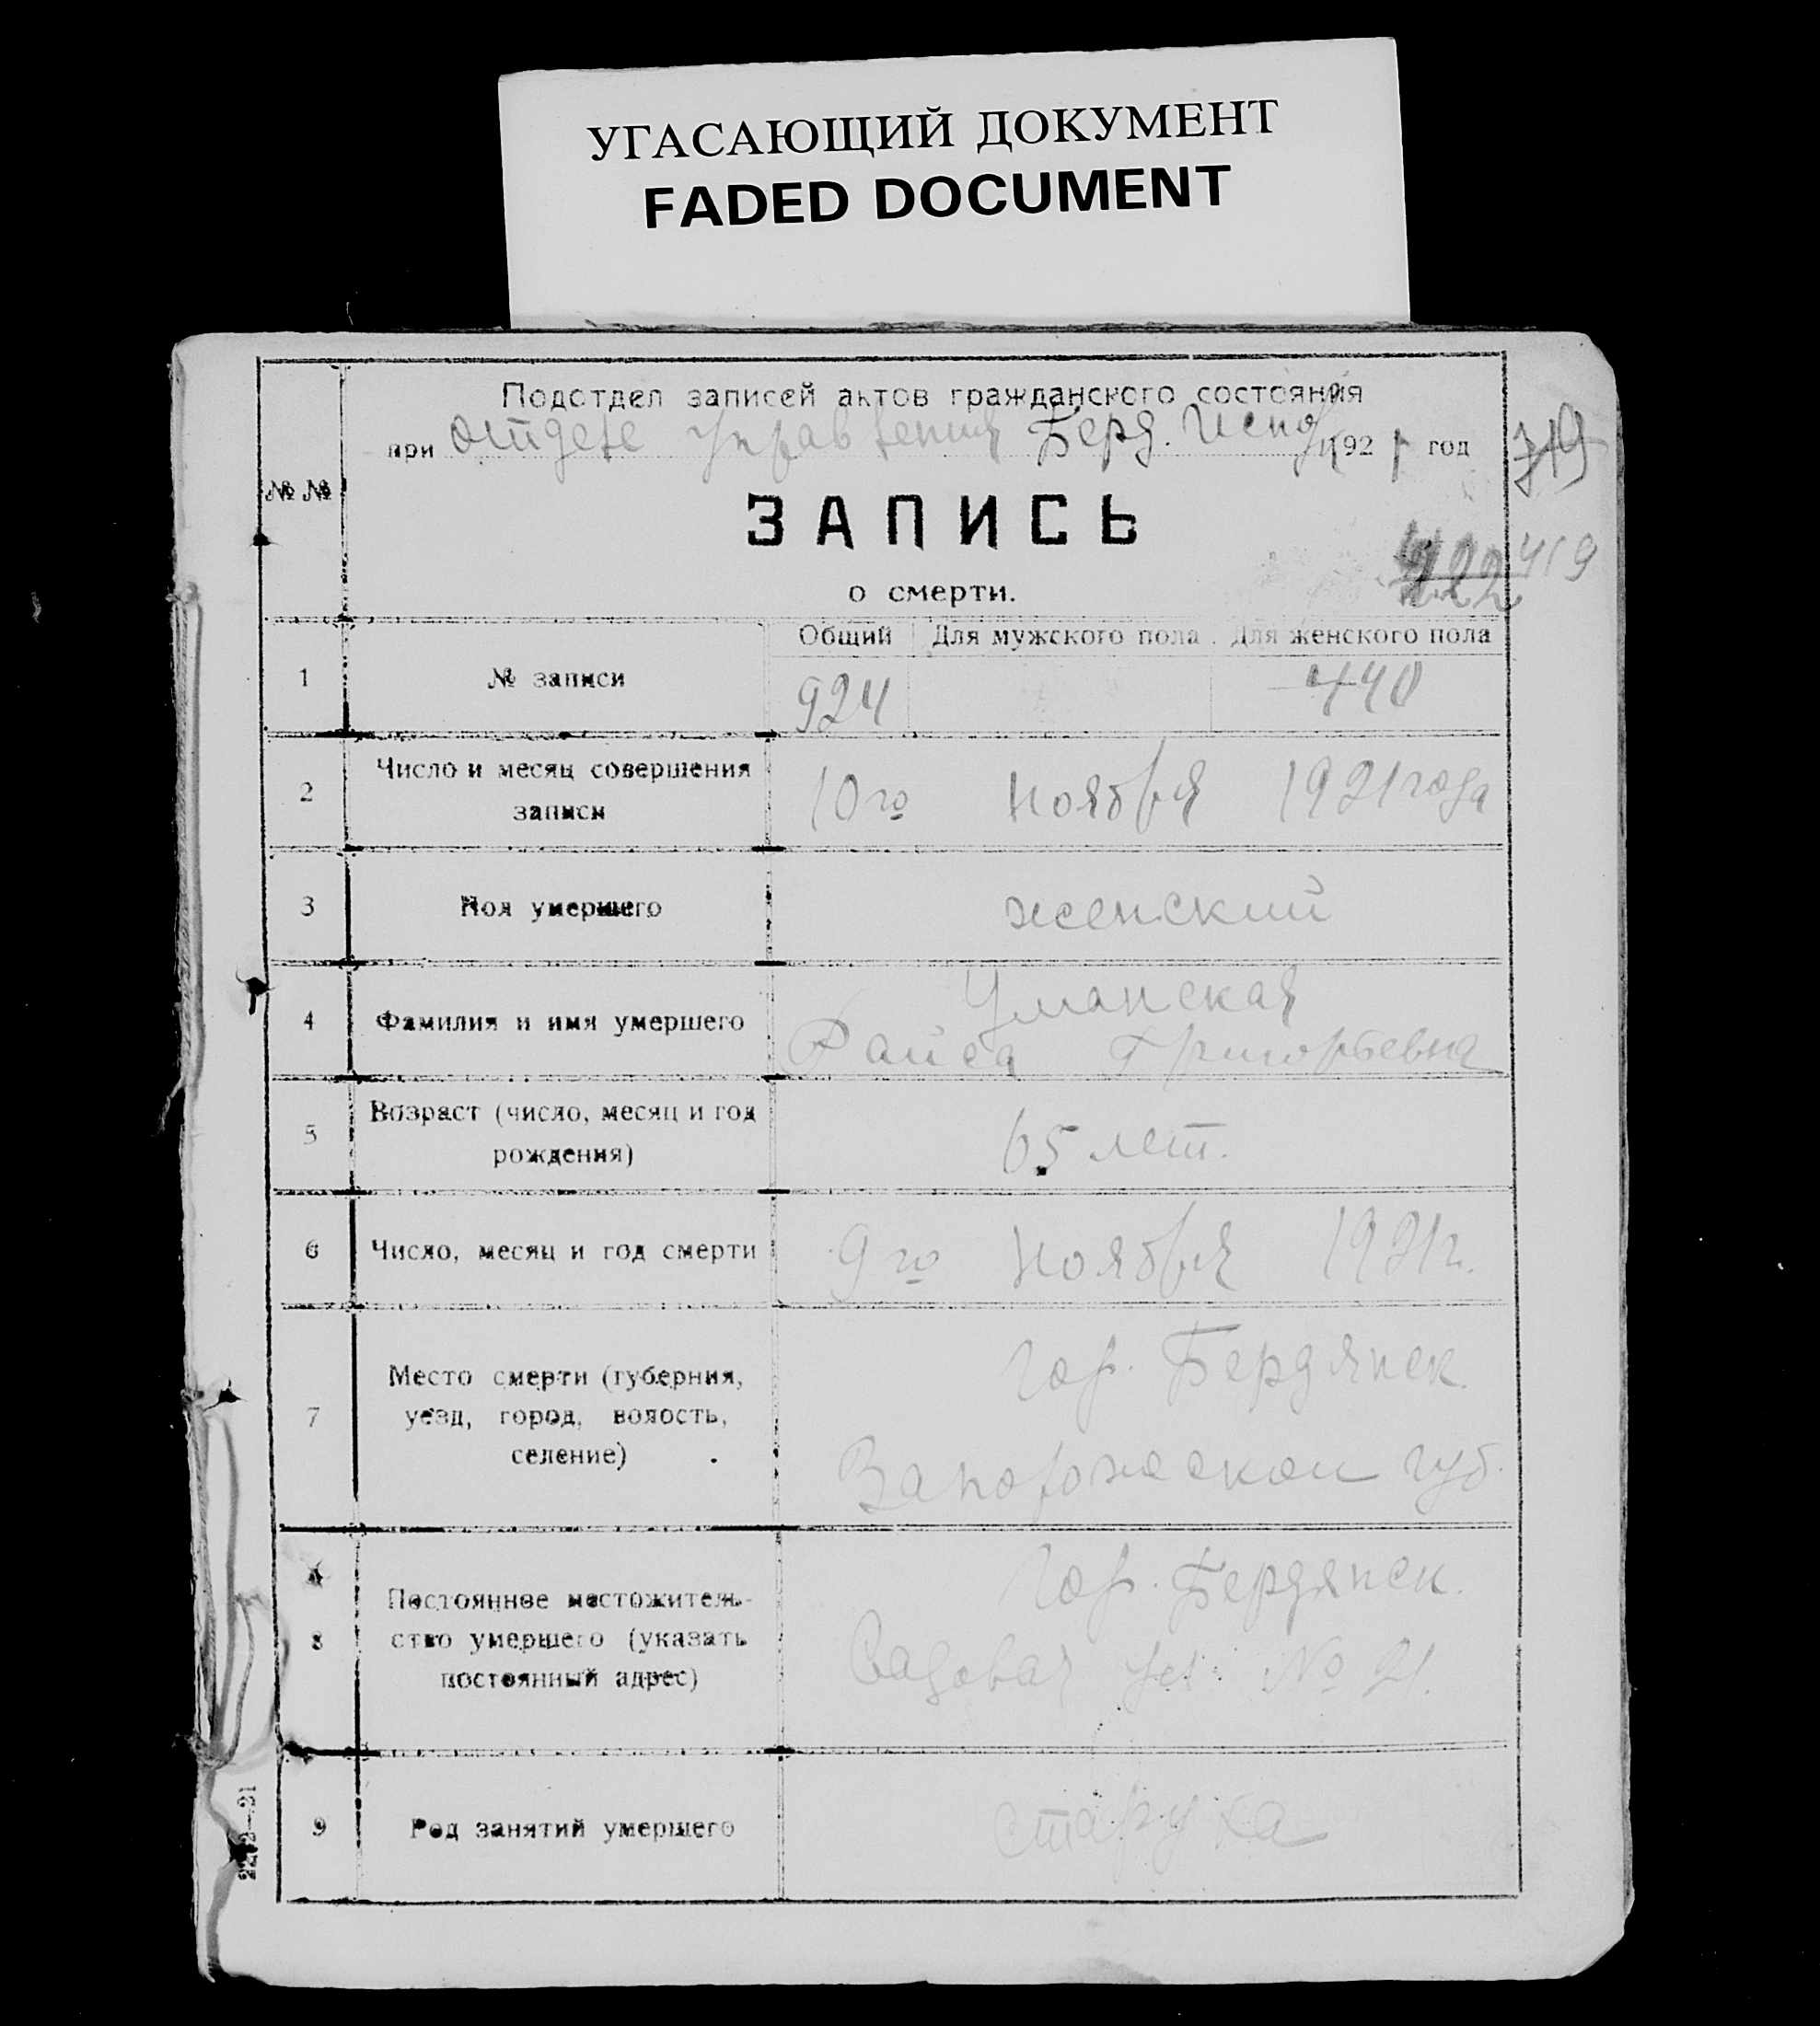 УГАСАЮЩИЙ ДОКУМЕНТ
FADED DOCUMENT
Подотдел записей актов гражданского состояния
при отделе управления Берд. Испо 192 год
№ №
ЗАПИСЬ
419
о смерти.
Общий Для мужского пола Для женского пола
1 № записи 924 440
2 Число и месяц совершения
записи
10го Ноября 1921 года
3 Пол умершего женский
4 Фамилия и имя умершего
Уманская
Раиса Григорьевна
5 Возраст (число, месяц и год
рождения)
65 лет.
6 Число, месяц и год смерти 9го Ноября 1921 г.
7 Место смерти (губерния,
уезд, город, волость,
селение)
гор. Бердянск
Запорожской губ.
8 Постоянное местожитель-
ство умершего (указать
постоянный адрес)
гор. Бердянск.
Садовая ул. № 21.
9 Род занятий умершего старуха